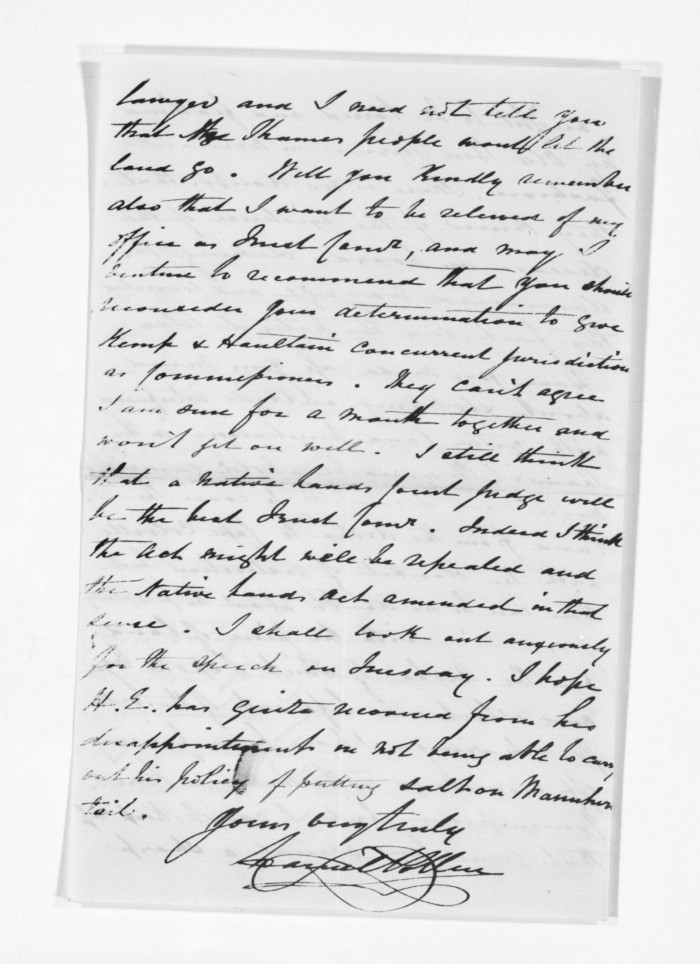 lawyer and I need not tell you
that the Thames people wont let the
land go. Will you kindly remember
also that I want to be relieved of my
office as Trust Comr, and may I
venture to recommend that you should
reconsider your determination to give
Kemp & Haultain concurrent jurisdiction
as Commissioners. They can't agree
I am sure for a month together and
won't get on well. I still think
that a Native Lands Court Judge will
be the best Trust Comr. Indeed I think
the Act might well be repealed and
the Native Lands Act amended in that
sense. I shall look out anxiously
for the speech on Tuesday. I hope
H.E. has quite recovered from his
disappointments in not being able to carry
out his policy of putting salt on
tail.
Yours very truly